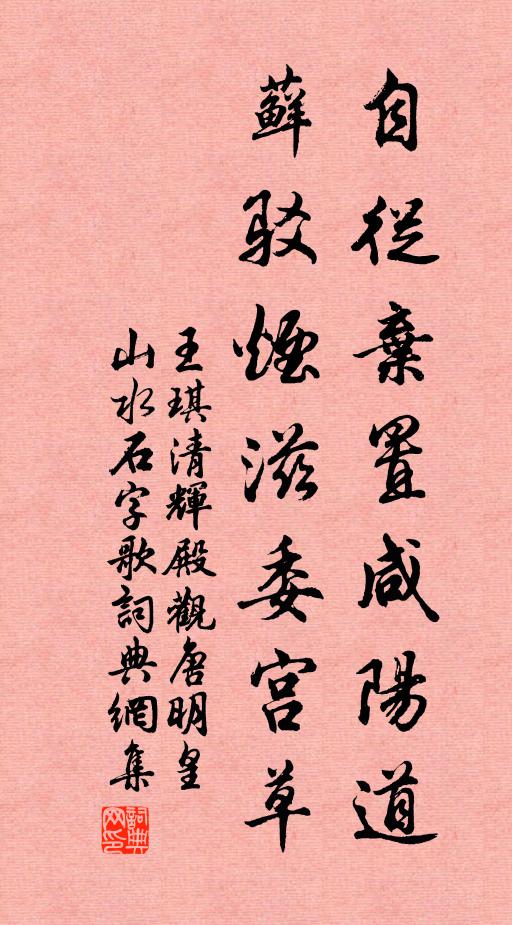 自從棄置咸陽道
蘚駁煙滋委宮草
王琪清輝殿觀唐明皇
山水石字歌詞典網集
詞典网印